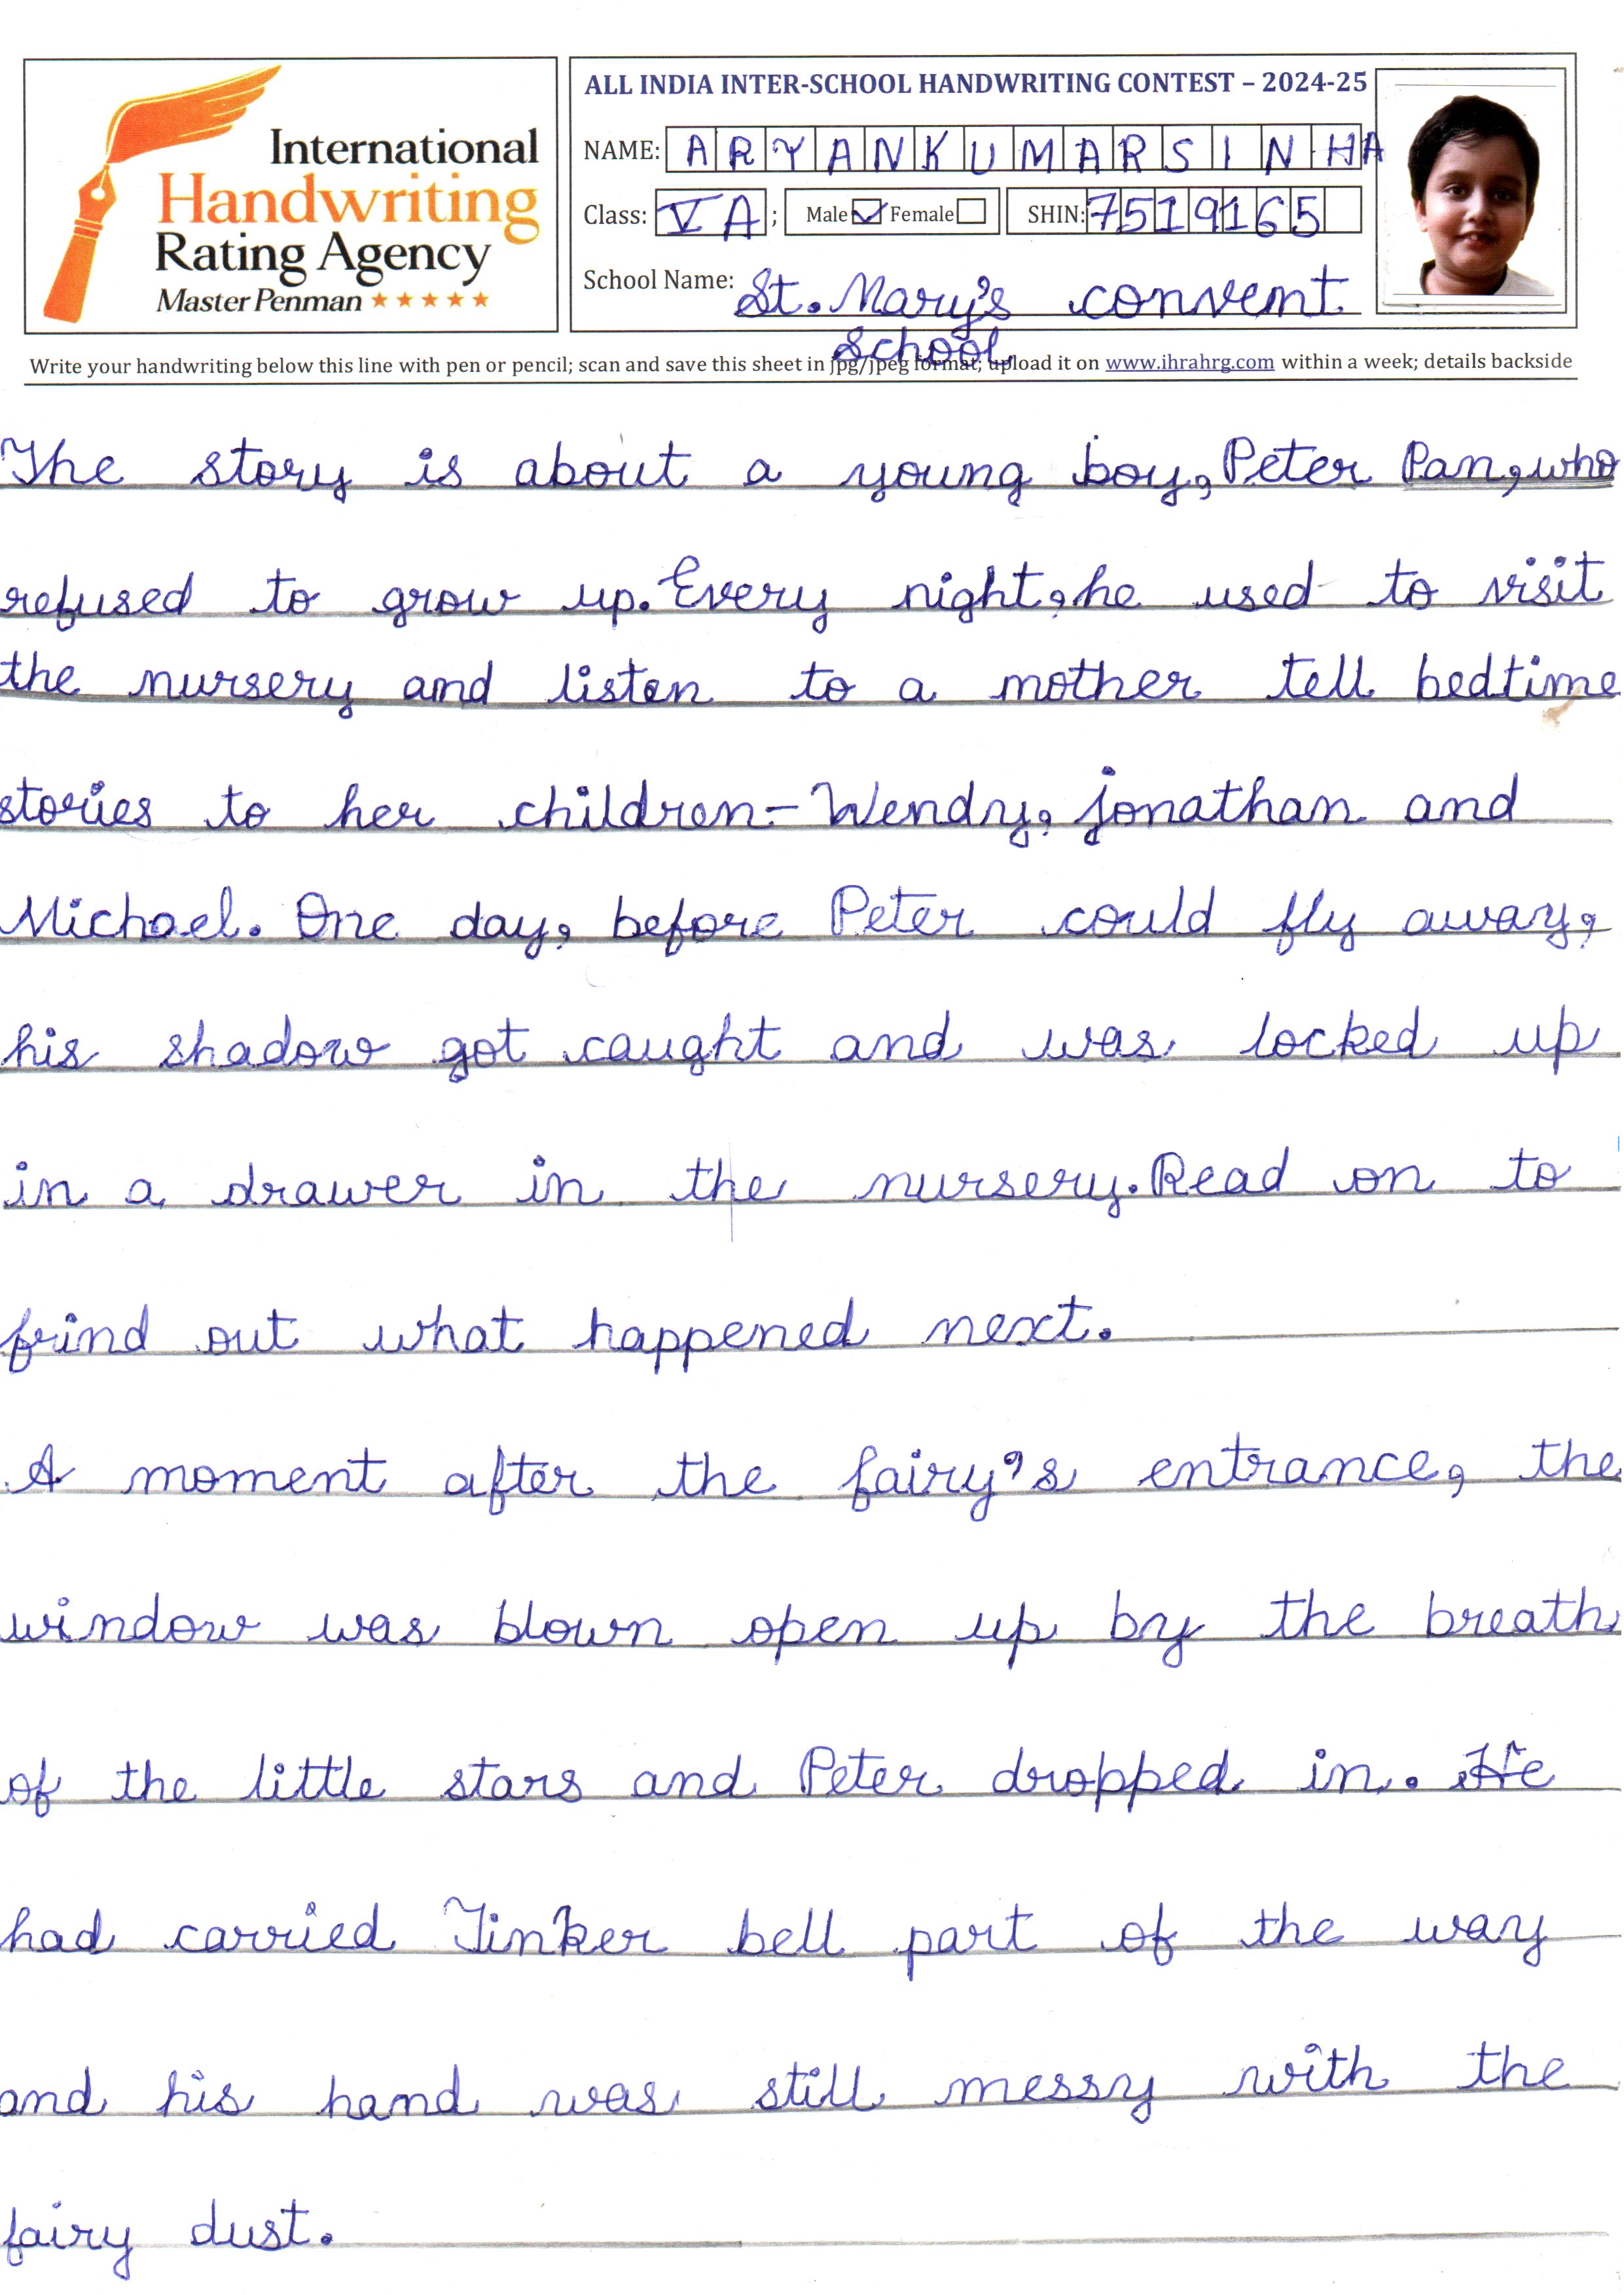 International
Handwriting
Rating Agency
Master Penman
ALL INDIA INTER-SCHOOL HANDWRITING CONTEST – 2024-25
NAME: ARYANKUMARSINHA
Class: V A ; Male Female SHIN: 7519165
School Name: St. Mary's convent
School
Write your handwriting below this line with pen or pencil; scan and save this sheet in jpg/jpeg format; upload it on www.ihrahrg.com within a week; details backside
The story is about a young boy, Peter Pan, who
refused to grow up. Every night, he used to visit
the nursery and listen to a mother tell bedtime
stories to her children- Wendy, Jonathan and
Michael. One day, before Peter could fly away,
his shadow got caught and was locked up
in a drawer in the nursery. Read on to
find out what happened next.
A moment after the fairy's entrance, the
window was blown open up by the breath
of the little stars and Peter dropped in. He
had carried Tinker bell part of the way
and his hand was still messy with the
fairy dust.